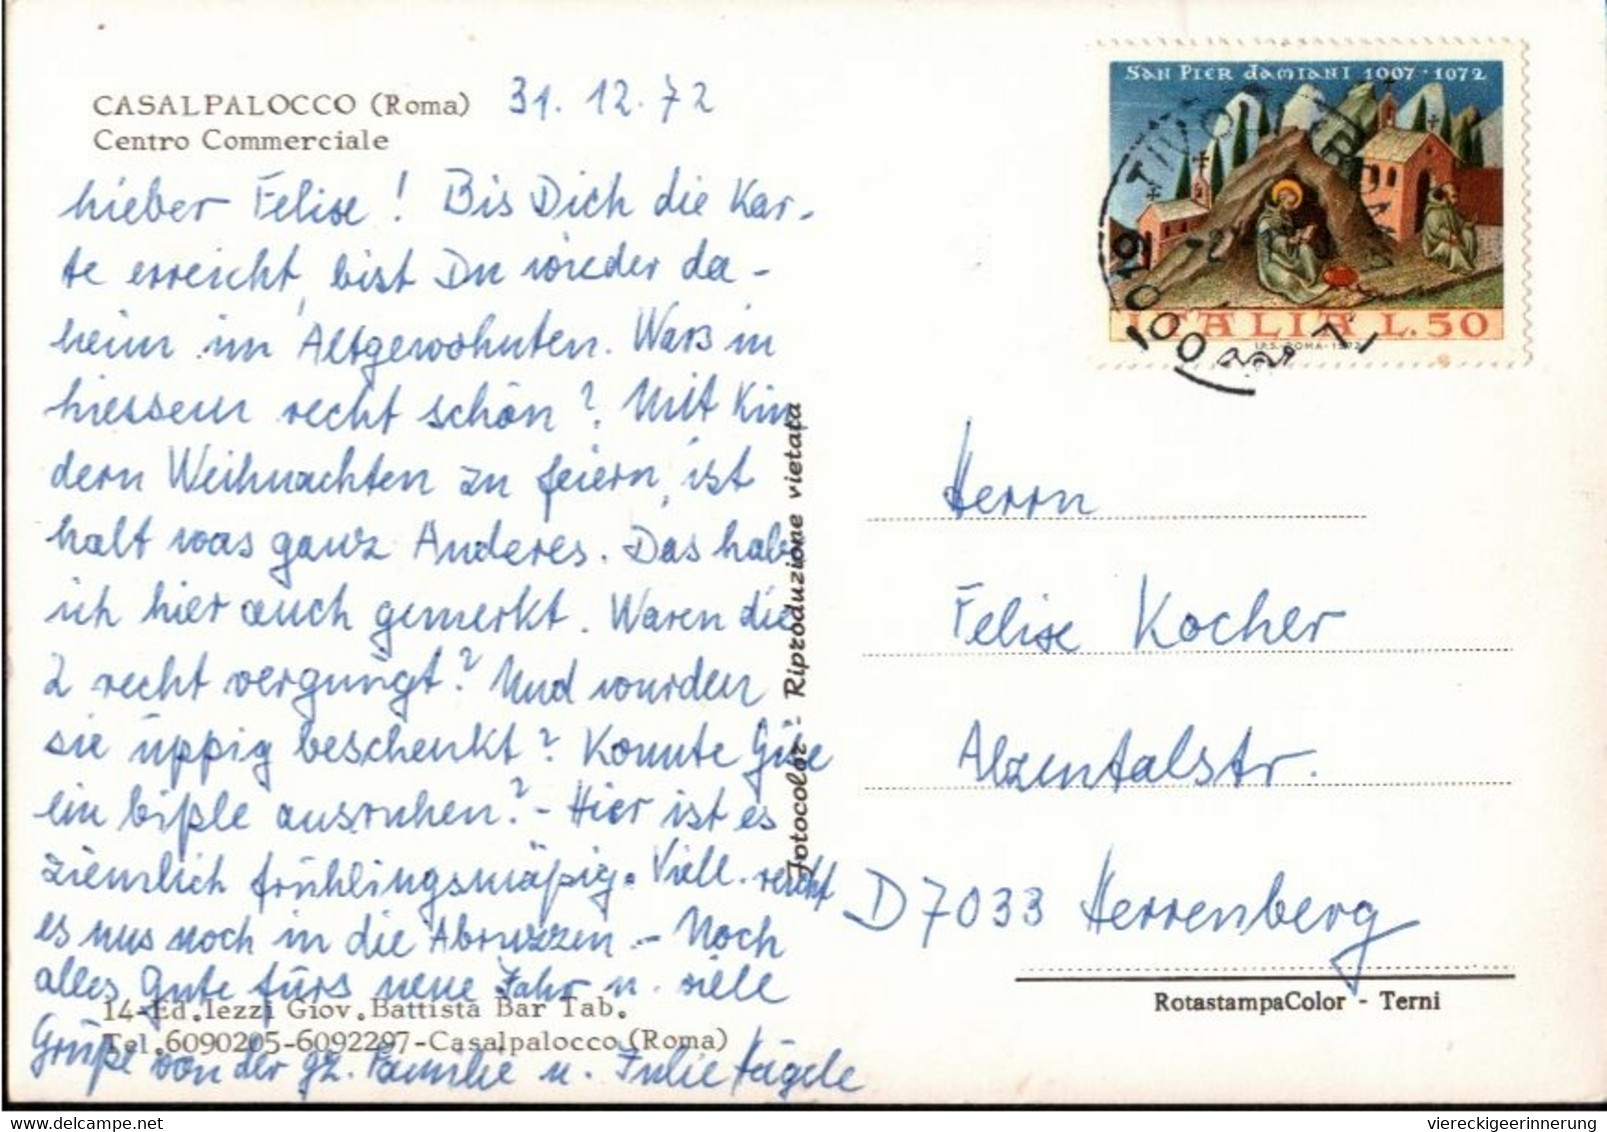 CASALPALOCCO (Roma) 31.12.72
Centro Commerciale
Lieber Felise! Bis Dich die Kar-
te erreicht, bist Du wieder da-
heim im Altgewohnten. Wars in
Hiessem recht schön? Mit Kin
dern Weihnachten zu feiern, ist
halt was ganz Anderes. Das habe
ich hier auch gemerkt. Waren die
2 recht vergnügt? Und wurden
sie üppig beschenkt? Konnte Gise
ein bißle ausruhen? - Hier ist es
ziemlich frühlingsmäßig. Viell. reicht
es uns noch in die Abruzzen. - Noch
alles Gute fürs neue Jahr u. viele
14-Ed.Iezzi Giov.Battista Bar Tab.
Tel.6090205-6092297-Casalpalocco (Roma)
Grüße von der gz. Familie u. Julie Hägele
Fotocolor - Riproduzione vietata
SAN PIER DAMIANI 1007 · 1072
ITALIA L.50
I.P.S.-ROMA-1972
00019 TIVOLI (ROMA)
Herrn
Felise Kocher
Alzentalstr.
D 7033 Herrenberg
RotastampaColor - Terni
viereckigeerinnerung